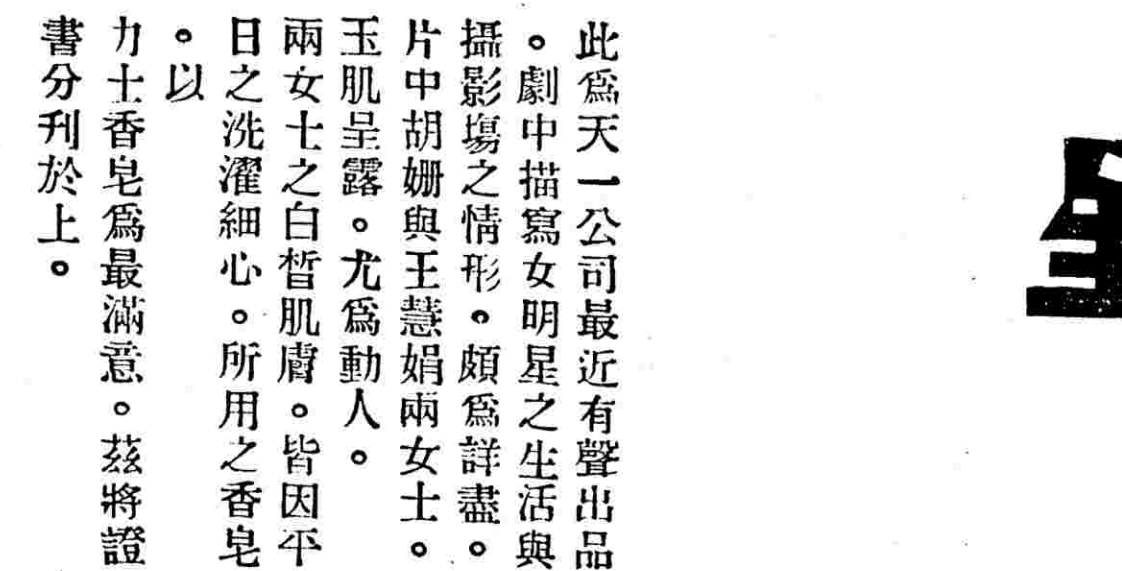 此爲天一公司最近有聲出品
。劇中描寫女明星之生活與
攝影塲之情形。頗爲詳盡。
片中胡姍與王慧娟兩女士。
玉肌呈露。尤爲動人。
兩女士之白皙肌膚。皆因平
日之洗濯細心。所用之香皂
。以
力士香皂爲最滿意。茲將證
書分刊於上。